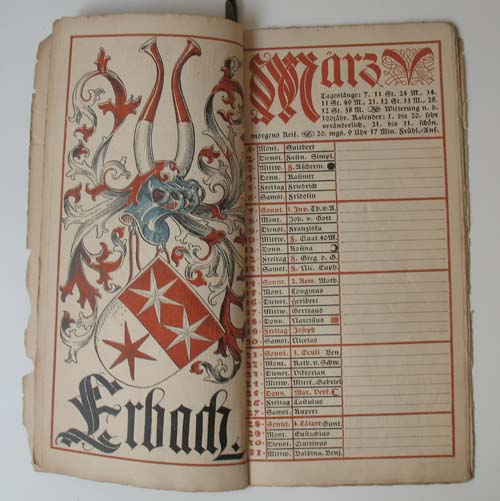 Erbach.
März
Tageslänge: 7. 11 St. 24 M., 14.
11 St. 49 M., 21. 12 St. 13 M., 28.
12 St. 38 M. Witterung n. d.
100jähr. Kalender: 1. bis 20. sehr
veränderlich, 21. bis 31. schön,
morgens Reif. 20. mgs. 9 Uhr 17 Min. Frühl.-Anf.
1 Mont. Suitbert
2 Dienst. Fastn. Simpl.
3 Mittw. F. Ascherm.
4 Donn. Kasimir
5 Freitag Friedrich
6 Samst. Fridolin
7 Sonnt. 1. Inv. Th. v. A.
8 Mont. Joh. v. Gott
9 Dienst. Franziska
10 Mittw. F. Quat. 40 M.
11 Donn. Rosina
12 Freitag F. Greg. d. G.
13 Samst. F. Nic. Euph.
14 Sonnt. 2. Rem. Math.
15 Mont. Longinus
16 Dienst. Heribert
17 Mittw. Gertraud
18 Donn. Narcissus
19 Freitag Joseph
20 Samst. Nicetas
21 Sonnt. 3. Oculi Ben.
22 Mont. Kath. v. Schw.
23 Dienst. Viktorian
24 Mittw. Mittf. Gabriel
25 Donn. Mar. Verk.
26 Freitag Castulus
27 Samst. Rupert
28 Sonnt. 4. Lätare Gunt.
29 Mont. Eustachius
30 Dienst. Quirinus
31 Mittw. Balbina, Benj.